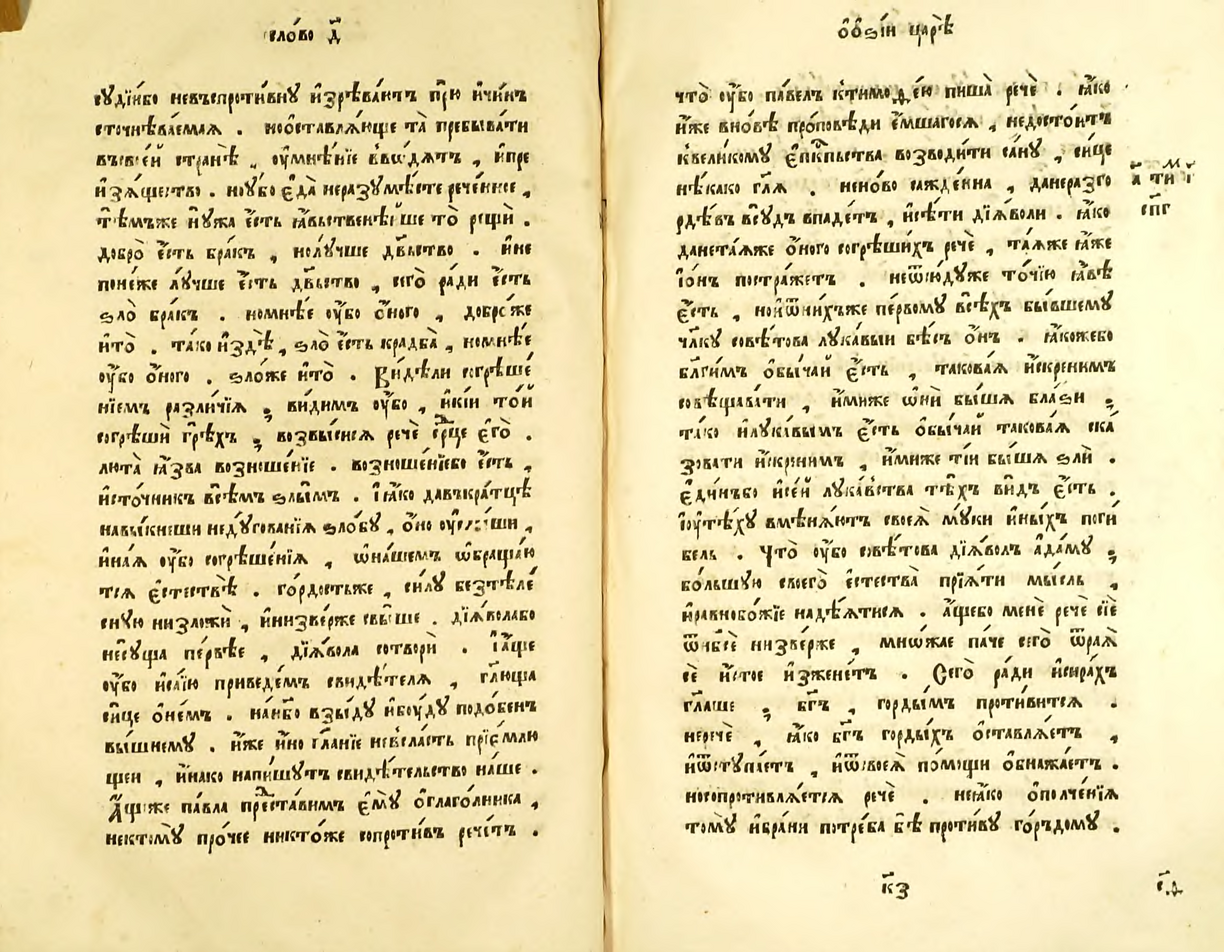 сло́во д҃
сꙋдїи́бо невъспроти́внꙋ и҆зрѣва́ютъ прю̀ и҆чи́нъ
сточнѣва́емаѧ . ноѡ҆ставлѧ́юще та̀ пребыва́ти
въсвое́й странѣ̀ , ᲂу҆мнѣ́нїе вво́дѧтъ , и҆пре
и҆зѧ́щество . ноᲂу҆́бо є҆да̀ неразꙋмѣ́сте рече́нное ,
тѣ́мъже нꙋ́жа є҆́сть ꙗ҆́вьственѣйше то̀ рещѝ .
добро̀ є҆́сть бра́къ , нолꙋ́чше дв҃ьство . и҆не
поне́же лꙋ́чше є҆́сть дв҃ьство , сего̀ ра́ди є҆́сть
ѕло̀ бра́къ . номнѣ́е ᲂу҆́бо ѻ҆́ного , добро́же
и҆то̀ . та́ко и҆здѣ̀ , ѕло̀ є҆́сть кра́дба , номнѣ́е
ᲂу҆́бо ѻ҆́ного . ѕло́же и҆то̀ . Ви́дѣли согрѣше́
нїемъ разли́чїѧ ; ви́димъ ᲂу҆́бо , и҆кі́и то́й
согрѣшѝ грѣ́хъ ; возвы́сисѧ речѐ ср҃це є҆гѡ̀ .
люта̀ ꙗ҆́зва возноше́нїе . возноше́нїебо є҆́сть ,
и҆сто́чник всѣ́мъ ѕлы́мъ . І҆ꙗ҆́ко давъкра́тцѣ
навы́кнеши недꙋ́гованїѧ ѕло́бꙋ , ѻ҆́но ᲂу҆слы́ши ,
и҆на́ѧ ᲂу҆́бо согрѣше́нїѧ , ѡ҆на́шемъ ѡ҆браща́ю
тсѧ є҆стествѣ̀ . го́рдостьже , си́лꙋ безтѣле́
снꙋю низложѝ , и҆низве́рже свы́ше . дїѧ́волабо
несꙋ́ща пе́рвѣе , дїѧ́вола сотворѝ . І҆а҆́ще
ᲂу҆́бо и҆са́їю приведе́мъ свидѣ́телѧ , гл҃юща
си́це ѻ҆не́мъ . нан҃бо взы́дꙋ и҆бꙋ́дꙋ подо́бенъ
вы́шнемꙋ . и҆́же и҆но гл҃анїе невсла́сть прїе́млю
щеи , и҆на́ко напи́шꙋтъ свидѣ́тельство на́ше .
А҆́щеже па́вла преⷣста́вимъ є҆мꙋ̀ ѻ҆глаго́лника ,
нектомꙋ̀ про́чее никто́же сопроти́въ рече́тъ .
ѻ҆ѻ҆ѕі́и царѣ̀
что̀ ᲂу҆́бо па́велъ ктимоѳе́ю пиша̀ речѐ . ꙗ҆́ко
и҆́же вно́вѣ про́повѣди є҆́мшагосѧ , недосто́итъ
квели́комꙋ є҆пⷭ҇кпьства возводи́ти са́нꙋ , си́це
нѣ́како гл҃ѧ . нено́во сажде́нна , данеразго
рдѣ́въ всꙋ́дъ впаде́тъ , и҆сѣ́ти дїѧ́воли . ꙗ҆́ко
данета́ѧже ѻ҆́ного согрѣши́хъ речѐ , та́ѧже ꙗ҆́же
і҆ѻ҆́нъ постра́жетъ . неѿи́ндꙋже то́чїю ꙗ҆́вѣ
є҆́сть , ной҆ѿни́хъже пе́рвомꙋ всѣ́хъ бы́вшемꙋ
чл҃кꙋ совѣ́това лꙋка́выи бѣ́съ ѻ҆́нъ . ꙗ҆́коже́бо
бл҃ги́мъ ѻ҆бы́чаи є҆́сть , такова́ѧ и҆́скренимъ
совѣщава́ти , и҆́миже ѻ҆нѝ бы́шѧ бла́ѕи ;
та́ко и҆лꙋка́вымъ є҆́сть ѻ҆бы́чай такова́ѧ ска́
зовати и҆́скренимъ , и҆́миже ті́и бы́шѧ ѕлѝ .
є҆ди́нъбо и҆се́й лꙋка́вства тѣ́хъ ви́дъ є҆́сть .
і҆ᲂу҆тѣ́хꙋ вмѣнѧ́ютъ своеѧ̀ мꙋ́ки и҆ны́хъ поги́
бель . Что̀ ᲂу҆́бо совѣ́това дїѧ́волъ а҆да́мꙋ ;
бо́льшꙋю своего̀ є҆стества̀ прїѧ́ти мы́сль ,
и҆равнобо́жїе надѣ́ѧтисѧ . а҆́щебо менѐ речѐ сїѐ
ѿнб҃сѐ низве́рже , мно́жае па́че сего̀ ѿра́ѧ
сѐ и҆́стое и҆зжене́тъ . Сего̀ ра́ди и҆сира́хъ
гл҃аше ; бг҃ъ , го́рдымъ проти́витсѧ .
неречѐ , ꙗ҆́ко бг҃ъ го́рдыхъ ѻ҆ставлѧ́етъ ,
и҆ѿстꙋпа́етъ , и҆ѿсвоеѧ̀ по́мощи ѻ҆бнажа́етъ .
носопротивлѧ́етсѧ речѐ . неꙗ҆́ко ѻ҆полче́нїѧ
томꙋ̀ и҆бра́ни потре́ба бѣ̀ проти́вꙋ го́ръдомꙋ .
спг
к҃з